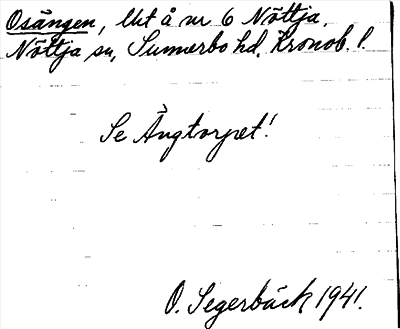 Osängen, lht å nr 6 Nöttja,
Nöttja sn, Sunnerbo hd, Kronob. l.
Se Ängtorpet!
O. Segerbäck 1941.